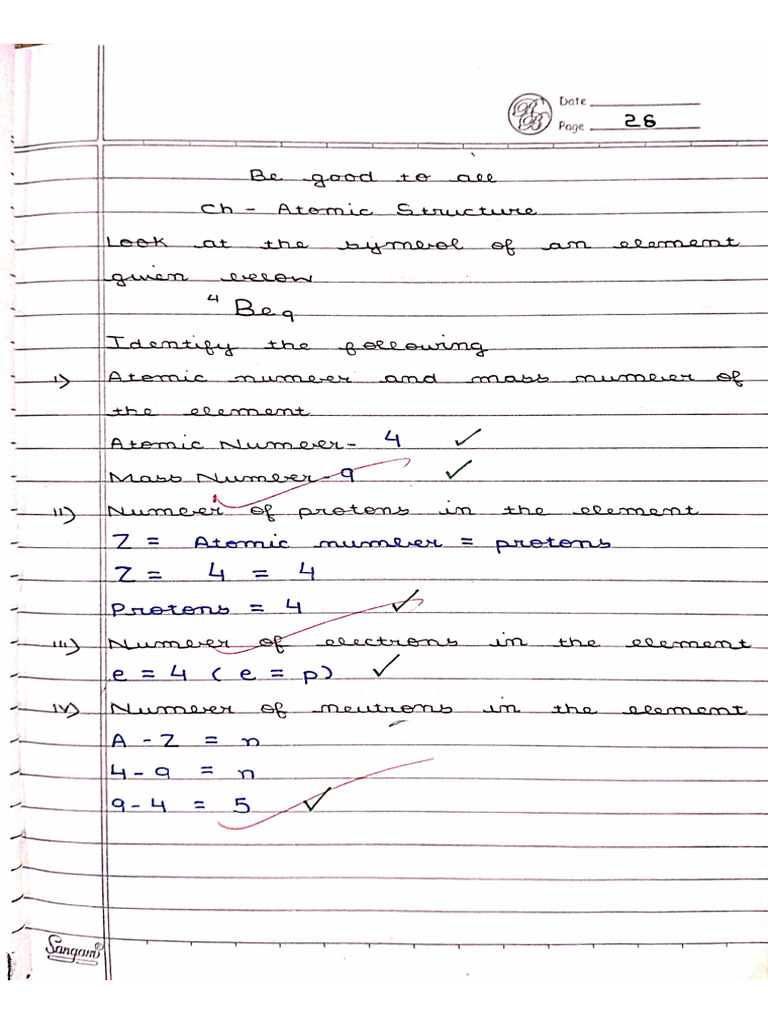 Date
Page 26
Be good to all
Ch - Atomic Structure
Look at the symbol of an element
given below
⁴Be₉
Identify the following
i) Atomic number and mass number of
the element
Atomic Number- 4 ✓
Mass Number- 9 ✓
ii) Number of protons in the element
Z = Atomic number = protons
Z = 4 = 4
Protons = 4 ✓
iii) Number of electrons in the element
e = 4 ( e = p) ✓
iv) Number of neutrons in the element
A - Z = n
4 - 9 = n
9 - 4 = 5 ✓
Sangam